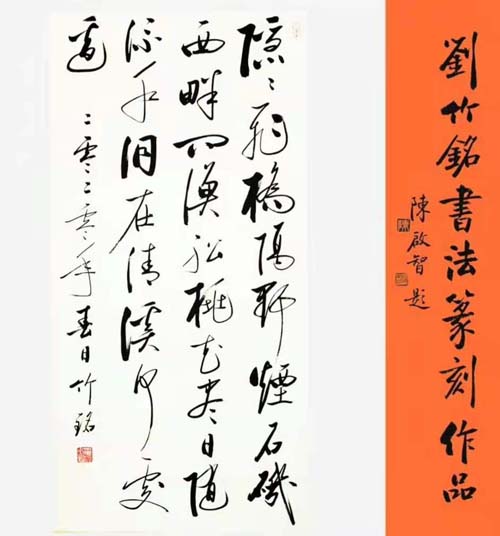 劉竹銘書法篆刻作品
陳啟智題
隱隱飛橋隔野煙石磯
西畔问漁船桃花尽日随
流水洞在清溪何處
邊
二零二零年春日竹铭